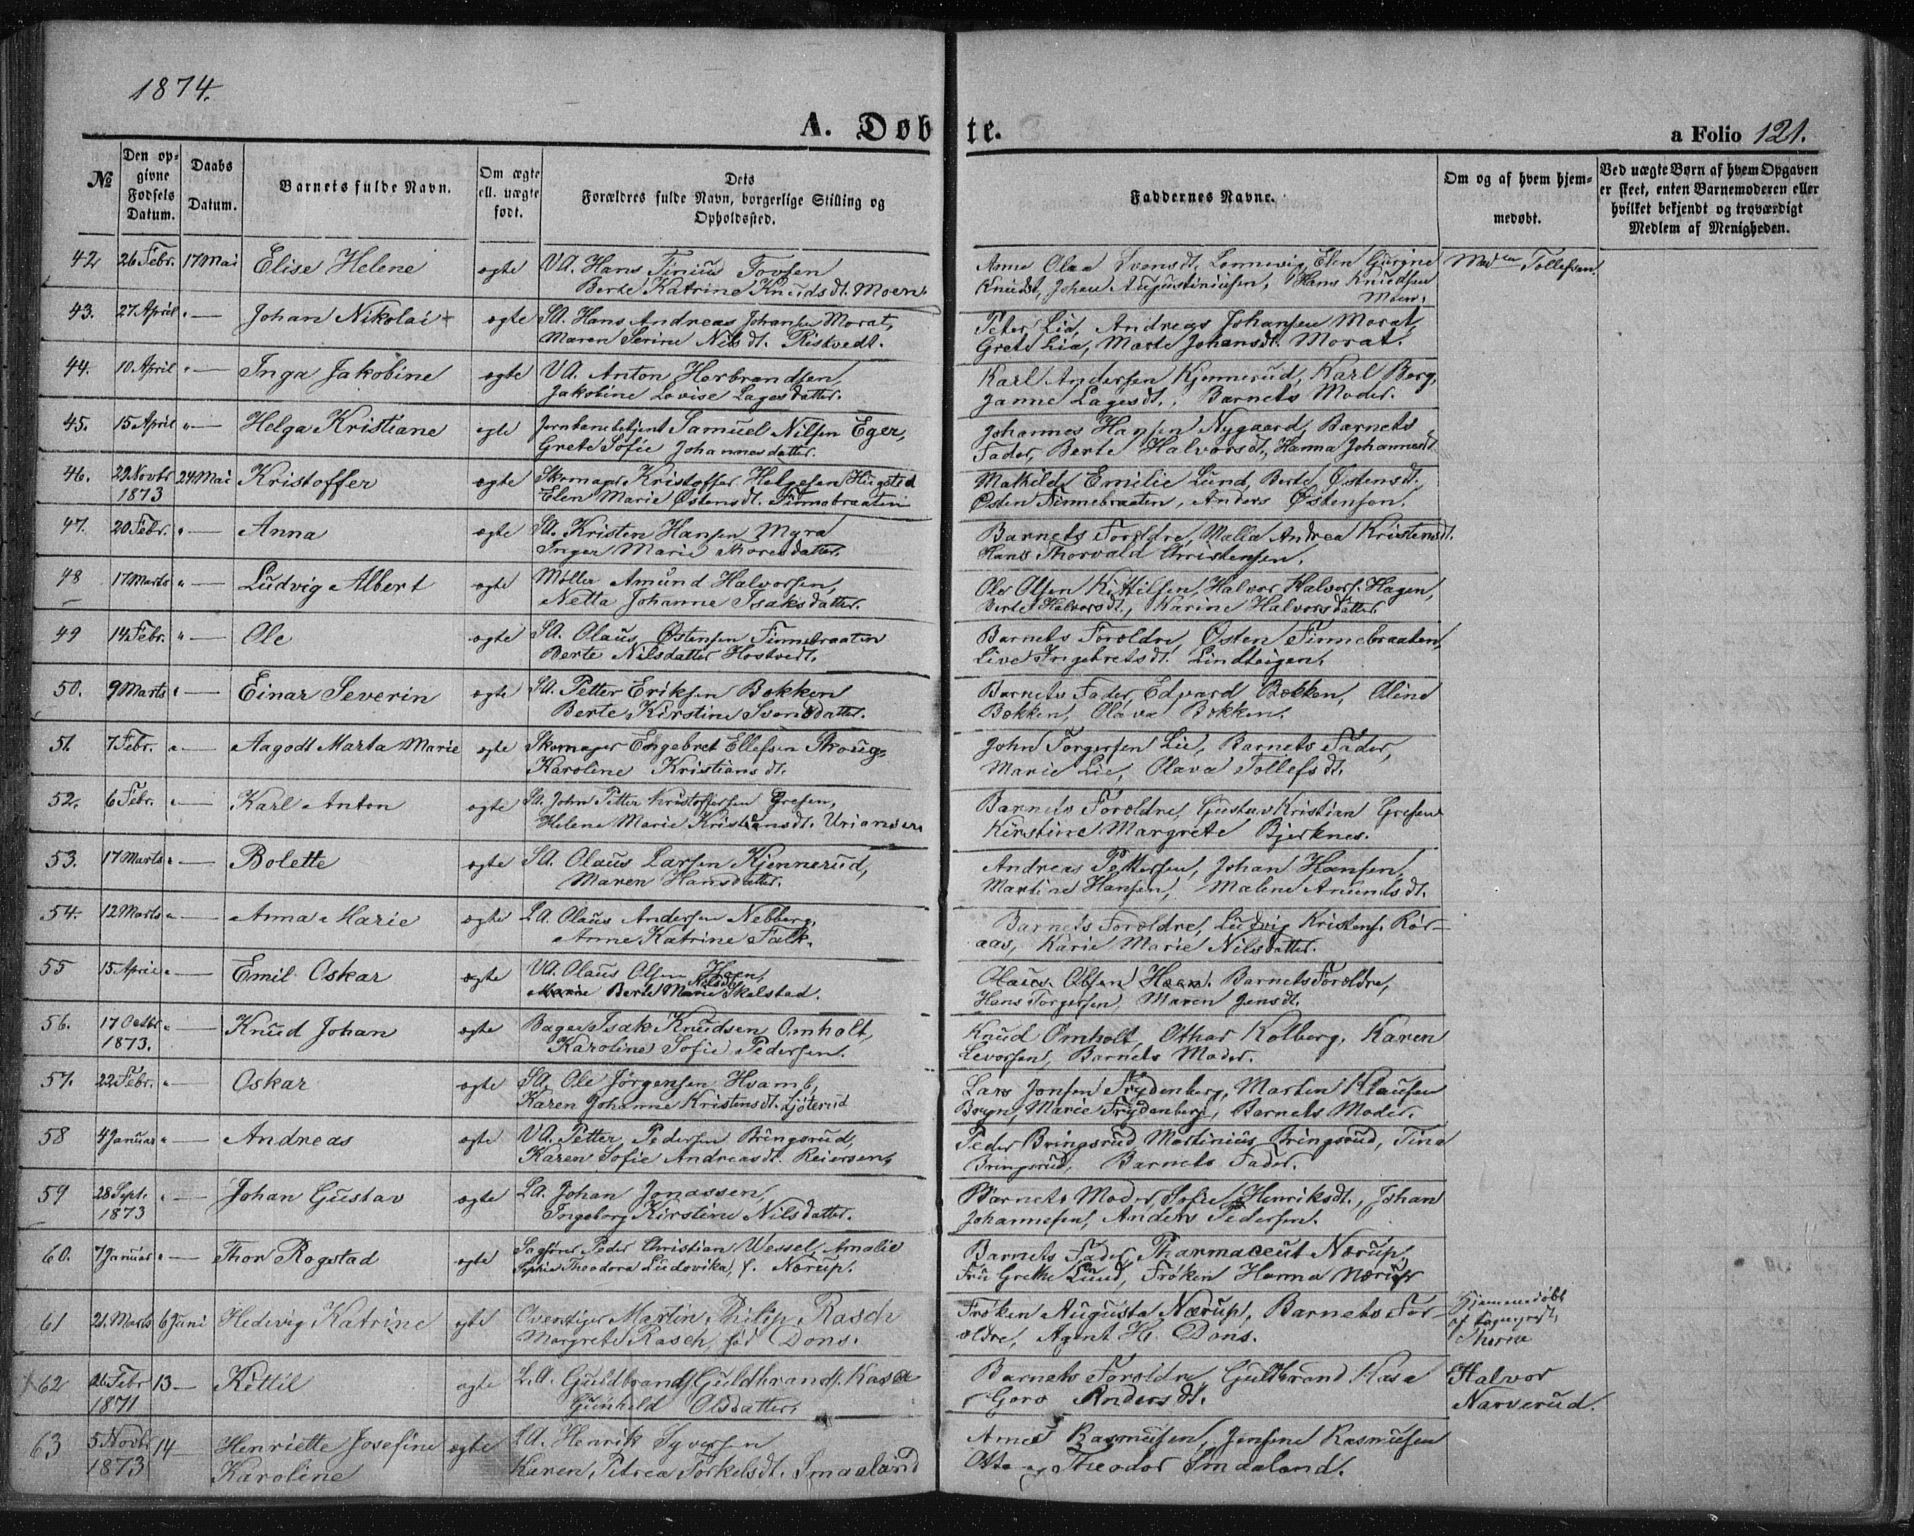 1874.
A. Døbte.
a Folio 121.
№
Den opgivne Fødsels Datum.
Daabs Datum.
Barnets fulde Navn.
Om ægte ell. uægte født.
Dets Forældres fulde Navn, borgerlige Stilling og Opholdssted.
Faddernes Navne.
Om og af hvem hjemmedøbt.
Ved uægte Børn af hvem Opgaven er skeet, enten Barnemoderen eller hvilket bekjendt og troværdigt Medlem af Menigheden.
42 26 Febr. 17 Mai Elise Helene ægte VA. Hans Tinius Tovsen
Berte Katrine Knudsdt. Moen.
Anne Olaa Svensdt. Lonnevig, Elen Gurine
Knudst, Johan Augustiniusen, Hans Knudsen
Moen.
Tollefsen
43. 27 April " — Johan Nikolai ægte SA. Hans Andreas Johansen Morat,
Maren Serine Nilsdt. Ristvedt.
Peter Lia, Andreas Johansen Morat,
Grete Lia, Marte Johansdt. Morat.
44. 10 April " — Inga Jakobine ægte VA. Anton Herbrandsen,
Jakobine Lovise Lagesdatter.
Karl Andersen Kjennerud, Karl Berg,
Janne Lagesdt., Barnets Moder.
45. 15 April " — Helga Kristiane ægte Jernbanebetjent Samuel Nilsen Eger,
Grete Sofie Johannesdatter.
Johannes Hansen Nygaard, Barnets
Fader, Berte Halvorsdt., Hanna Johannesdt.
46. 22 Novbr 1873 24 Mai Kristoffer ægte Skomager Kristoffer Helgesen Hugsted
Elen Marie Østensdt. Finnebraaten
Mathilde Emilie Lund, Berte Østensdt.
Østen Finnebraaten, Anders Østensen.
47. 20 Febr. " — Anna ægte SA. Kristen Hansen Myra
Inger Marie Morensdatter.
Barnets Foroldre, Malla Andrea Kristensdt.
Hans Thorvald Christensen.
48 17 Marts " — Ludvig Albert ægte Møller Amund Halvorsen,
Netta Johanne Isaksdatter.
Ole Olsen Kittilsen, Halvor Halvors. Hagen,
Berte Halvorsdt., Karine Halvorsdatter.
49 14 Febr. " — Ole ægte SA. Olaus Østensen Finnebraaten
Berte Nilsdatter Hostvedt.
Barnets Foroldre, Østen Finnebraaten,
Live Ingebretsdt. Lindteigen.
50. 9 Marts " — Einar Severin ægte SA. Petter Eriksen Bokken
Berte Kirstine Svensdatter.
Barnets Fader, Edvard Bokken, Oline
Bokken, Olava Bokken.
51. 7 Febr. " — Aagodt Marta Marie ægte Skomager Engebret Ellefsen Skoug,
Karoline Kristiansdt.
John Torgersen Lie, Barnets Fader,
Marie Lie, Olava Tollefsdt.
52. 6 Febr. " — Karl Anton ægte SA. John Petter Kristoffersen Gresen,
Helene Marie Kristiansdt. Uriansen
Barnets Foroldre, Gustav Kristian Gresen
Kirstine Margrete Bjerknes.
53. 17 Marts " — Bolette ægte SA. Olaus Larsen Kjennerud,
Maren Hansdatter.
Andreas Pettersen, Johan Hansen,
Martine Hansen, Malene Anundsdt.
54. 12 Marts " — Anna Marie ægte LA. Olaus Andersen Nebberg,
Anne Katrine Falk.
Barnets Foroldre, Ludvig Kristens. Rør-
aas, Karie Marie Nilsdatter.
55 15 April " — Emil Oskar ægte VA. Olaus Olsen Hoen,
Berte Marie Nilsdt. Skolstad.
Olaus Olsen Hoen. Barnets Foroldre,
Hans Torgersen, Maren Jensdt.
56. 17 Octbr 1873. " — Knud Johan ægte Bager Isak Knudsen Omholt,
Karoline Sofie Pedersen.
Knud Omholt, Othar Kolberg, Karen
Levorsen, Barnets Moder.
57. 22 Febr. " — Oskar ægte SA. Ole Jørgensen Hvamb,
Karen Johanne Kristensdt. Ljøterud
Lars Jonsen Frydenberg, Martin Klausen
Bruen, Marie Frydenberg, Barnets Moder.
58 4 Januar " — Andreas ægte VA. Petter Pedersen Bringsrud,
Karen Sofie Andreasdt. Reiersen,
Peder Bringsrud Martinius Bringsrud, Tina
Bringsrud, Barnets Fader.
59 28 Sept. 1873 " — Johan Gustav ægte LA. Johan Jonassen,
Ingeborg Kirstine Nilsdatter.
Barnets Moder, Sofie Henriksdt., Johan
Johannesen, Anders Pedersen.
60. 7 Januar " — Thor Rogstad ægte Sagfører Peder Christian Wessel, Amalie
Sophie Theodora Ludovika, f. Nærup.
Barnets Fader, Pharmaceut Nærup,
Fru Grethe Lund, Frøken Hanna Nærup
61 21 Marts 6 Juni Hedevig Katrine ægte Martin Philip Rasch
Margrete Rasch, fød Dons.
Frøken Augusta Nærup, Barnets For-
oldre, Agent H. Dons.
Hjemmedøbt
af
62 26 Febr 1871 13 — Kittil ægte LA. Guldbrand Guldbrands. Kasa
Gunhild Olsdatter.
Barnets Foroldre, Guldbrand Kasa
Goro Andersdt.
Halvor
Narverud.
63 5 Novbr 1873 14 Henriette Josefine
Karoline ægte LA. Henrik Syversen
Karen Petrea Torkelsdt. Smaaland
Arne Rasmusen, Jensine Rasmusen
Otto og Theodor Smaaland.